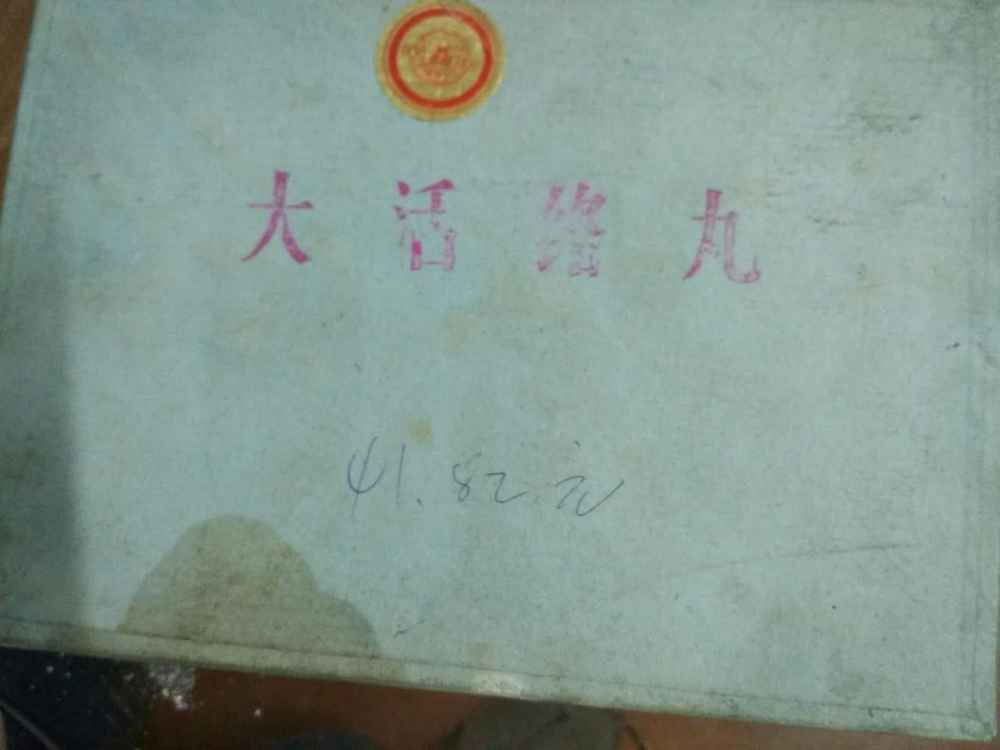 大活络丸
41.82元